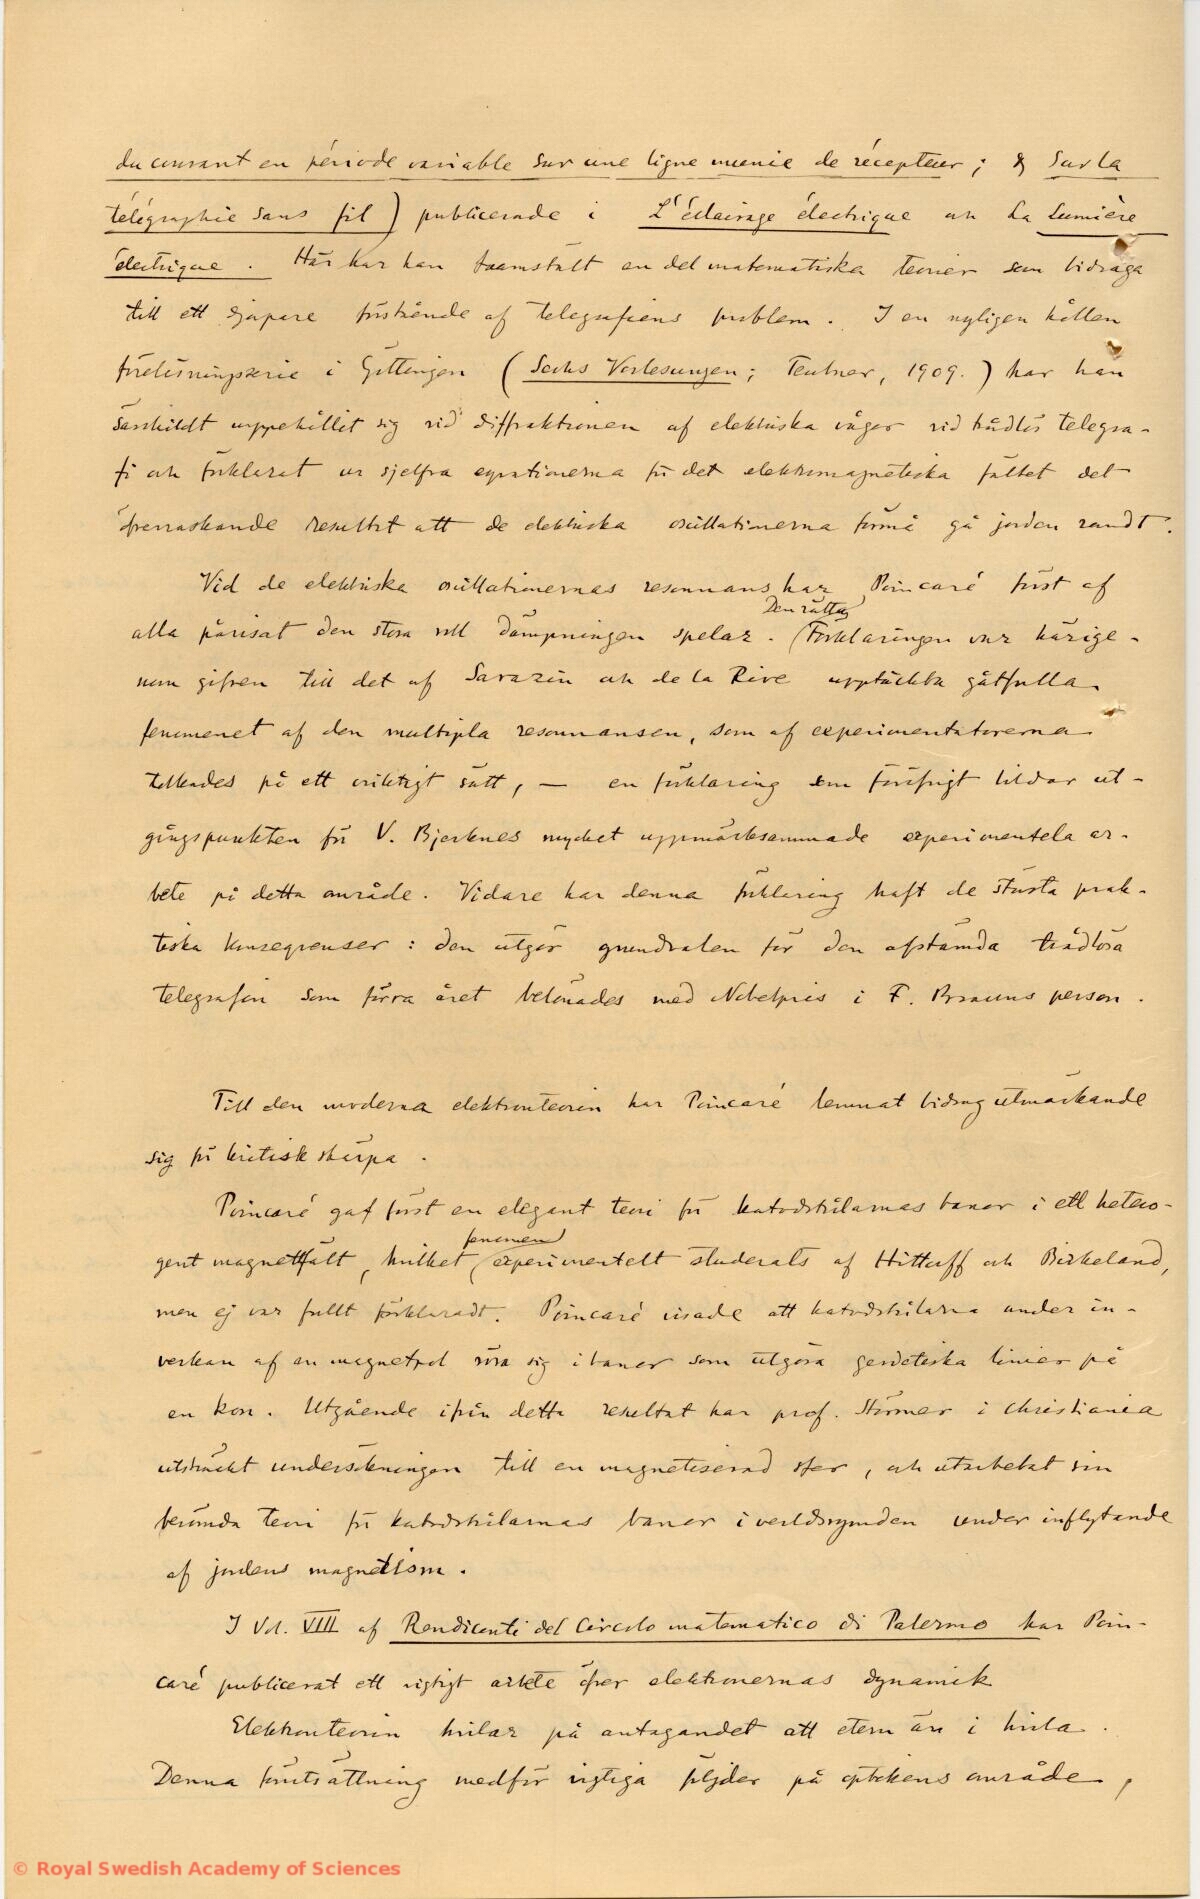 du courant en période variable sur une ligne munie de récepteur; & Sur la
télégraphie sans fil) publicerade i L'éclairage électrique och La Lumière
électrique. Här har han framstält en del matematiska teorier som bidraga
till ett djupare förstående af telegrafiens problem. I en nyligen hållen
föreläsningsserie i Göttingen (Sechs Vorlesungen; Teubner, 1909.) har han
särskildt uppehållit sig vid diffraktionen af elektriska vågor vid trådlös telegra-
fi och förklarat ur sjelfva eqvationerna för det elektromagnetiska fältet det
öfverraskande resultat att de elektriska oscillationerna förmå gå jorden rundt.
Vid de elektriska oscillationernas resonnans har Poincaré först af
Den rätta
alla påvisat den stora roll dämpningen spelar. (Förklaringen var härige-
nom gifven till det af Sarazin och de la Rive upptäckta gåtfulla
fenomenet af den multipla resonnansen, som af experimentatorerna
tolkades på ett oriktigt sätt, — en förklaring som föröfrigt bildar ut-
gångspunkten för V. Bjerknes mycket uppmärksammade experimentela ar-
bete på detta område. Vidare har denna förklaring haft de största prak-
tiska konseqvenser: den utgör grundvalen för den afstämda trådlösa
telegrafin som förra året belönades med Nobelpris i F. Brauns person.
Till den moderna elektronteorin har Poincaré lemnat bidrag utmärkande
sig för kritisk skärpa.
Poincaré gaf först en elegant teori för katodstrålarnas banor i ett hetero-
fenomen
gent magnetfält, hvilket (experimentelt studerats af Hittorff och Birkeland,
men ej var fullt förklaradt. Poincaré visade att katodstrålarna under in-
verkan af en magnetpol röra sig i banor som utgöra geodetiska linier på
en kon. Utgående ifrån detta resultat har prof. Störmer i Christiania
utsträckt undersökningen till en magnetiserad sfer, och utarbetat sin
berömda teori för katodstrålarnas banor i verldsrymden under inflytande
af jordens magnetism.
I Vol. VIII af Rendiconti del Circolo matematico di Palermo har Poin-
caré publicerat ett vigtigt arbete öfver elektronernas dynamik
Elektronteorin hvilar på antagandet att etern är i hvila.
Denna förutsättning medför vigtiga följder på optikens område,
© Royal Swedish Academy of Sciences